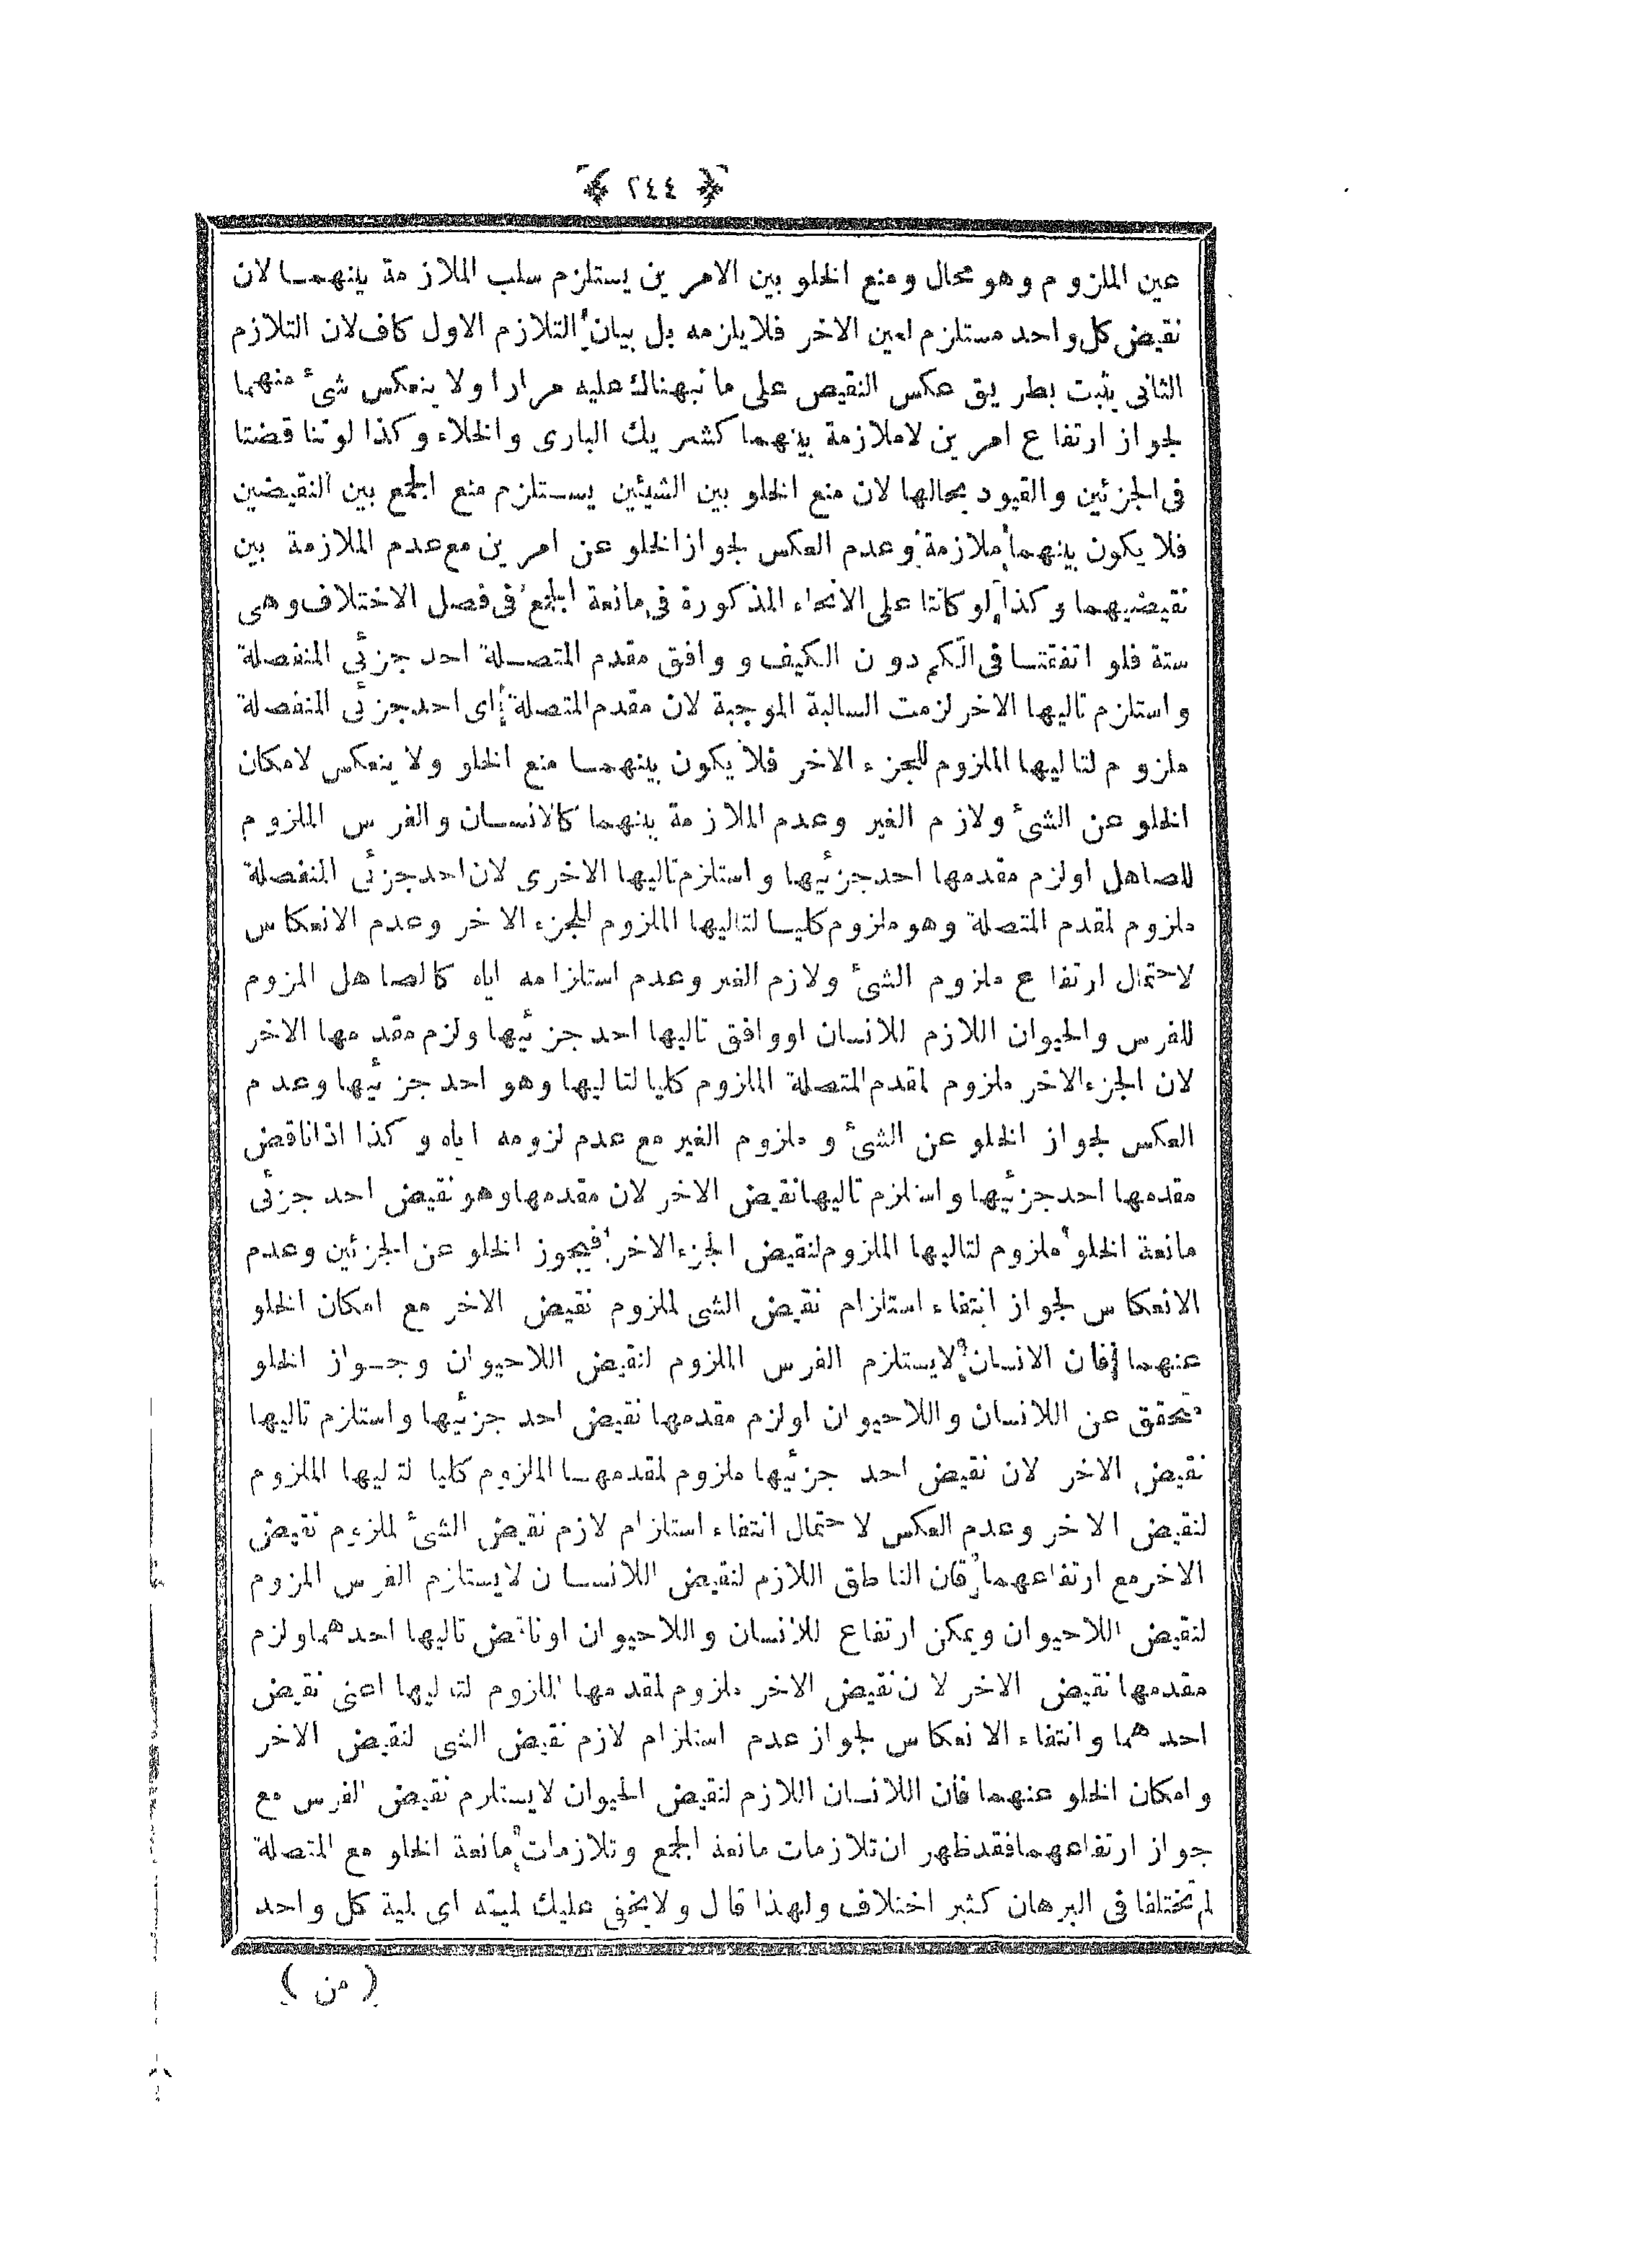 ﴿ ٢٤٤ ﴾
عين الملزوم وهو محال ومنع الخلو بين الامرين يستلزم سلب الملازمة بينهما لان
نقيض كل واحد مستلزم لعين الاخر فلا يلزمه بل بيان التلازم الاول كاف لان التلازم
الثانى يثبت بطريق عكس النقيض على ما نبهناك عليه مرارا ولا ينعكس شئ منهما
لجواز ارتفاع امرين لا ملازمة بينهما كشريك البارى والخلاء وكذا لو تناقضتا
فى الجزئين والقيود بحالها لان منع الخلو بين الشيئين يستلزم منع الجمع بين النقيضين
فلا يكون بينهما ملازمة وعدم العكس لجواز الخلو عن امرين مع عدم الملازمة بين
نقيضيهما وكذا لو كانتا على الانحاء المذكورة فى مانعة الجمع فى فصل الاختلاف وهى
ستة فلو اتفقتا فى الكم دون الكيف ووافق مقدم المتصلة احد جزئى المنفصلة
واستلزم تاليها الاخر لزمت السالبة الموجبة لان مقدم المتصلة اى احد جزئى المنفصلة
ملزوم لتاليها الملزوم للجزء الاخر فلا يكون بينهما منع الخلو ولا ينعكس لامكان
الخلو عن الشئ ولازم الغير وعدم الملازمة بينهما كالانسان والفرس الملزوم
للصاهل او لزم مقدمها احد جزئيها واستلزم تاليها الاخرى لان احد جزئى المنفصلة
ملزوم لمقدم المتصلة وهو ملزوم كليا لتاليها الملزوم للجزء الاخر وعدم الانعكاس
لاحتمال ارتفاع ملزوم الشئ ولازم الغير وعدم استلزامه اياه كالصاهل المزوم
للفرس والحيوان اللازم للانسان او وافق تاليها احد جزئيها ولزم مقدمها الاخر
لان الجزء الاخر ملزوم لمقدم المتصلة الملزوم كليا لتاليها وهو احد جزئيها وعدم
العكس لجواز الخلو عن الشئ وملزوم الغير مع عدم لزومه اياه وكذا اذا ناقض
مقدمها احد جزئيها واستلزم تاليها نقيض الاخر لان مقدمها وهو نقيض احد جزئى
مانعة الخلو ملزوم لتاليها الملزوم لنقيض الجزء الاخر فيجوز الخلو عن الجزئين وعدم
الانعكاس لجواز انتفاء استلزام نقيض الشى لملزوم نقيض الاخر مع امكان الخلو
عنهما فان الانسان لا يستلزم الفرس الملزوم لنقيض اللاحيوان وجواز الخلو
تحقق عن اللانسان واللاحيوان او لزم مقدمها نقيض احد جزئيها واستلزم تاليها
نقيض الاخر لان نقيض احد جزئيها ملزوم لمقدمها المالزوم كليا لتاليها الملزوم
لنقيض الاخر وعدم العكس لاحتمال انتفاء استلزام لازم نقيض الشئ لملزوم نقيض
الاخر مع ارتفاعهما فان الناطق اللازم لنقيض اللانسان لا يستلزم الفرس المزوم
لنقيض اللاحيوان ويمكن ارتفاع للانسان واللاحيوان او ناقض تاليها احدهما ولزم
مقدمها نقيض الاخر لان نقيض الاخر ملزوم لمقدمها الملزوم لتاليها اعنى نقيض
احدهما وانتفاء الانعكاس لجواز عدم استلزام لازم نقيض الشى لنقيض الاخر
وامكان الخلو عنهما فأن اللانسان اللازم لنقيض الحيوان لا يستلزم نقيض الفرس مع
جواز ارتفاعهما فقد ظهر ان تلازمات مانعة الجمع وتلازمات مانعة الخلو مع المتصلة
لم تختلفا فى البرهان كثير اختلاف ولهذا قال ولا يخفى عليك لميته اى لمية كل واحد
( من )